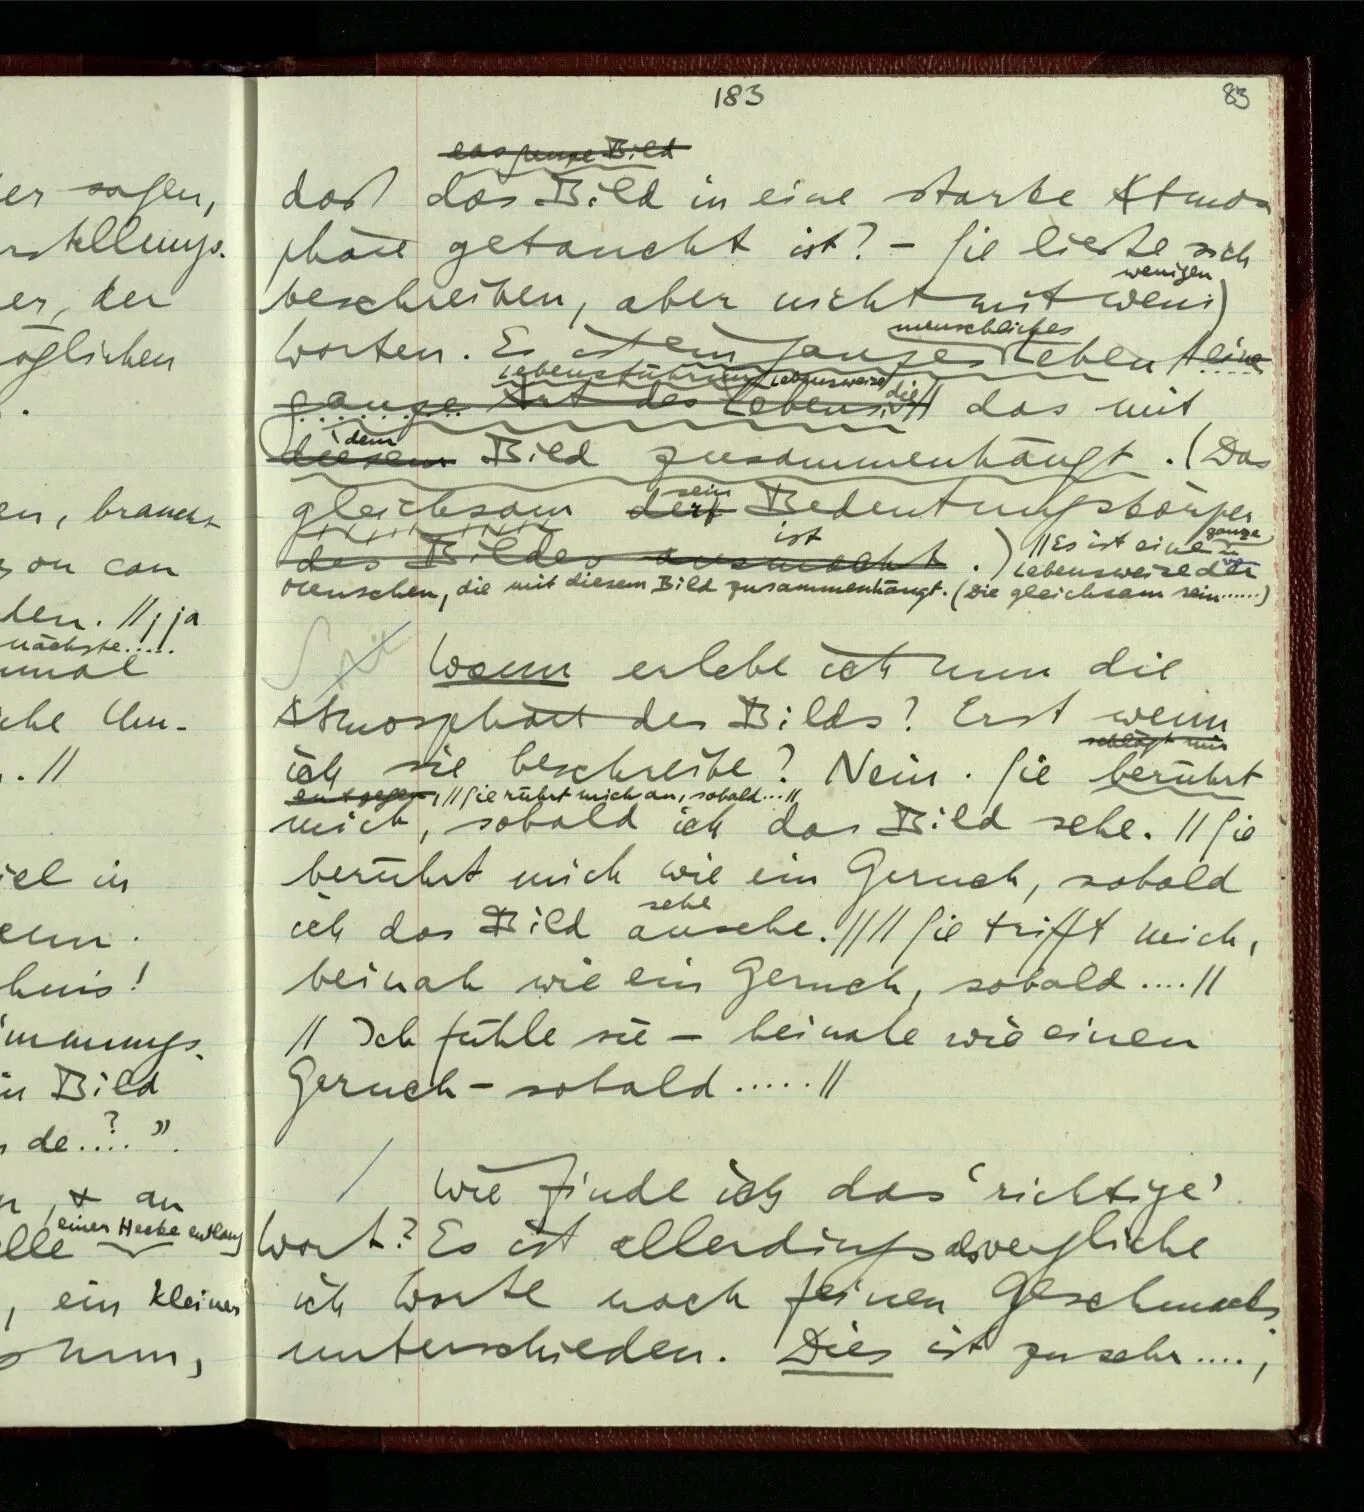 er sagen,
rstellungs-
er, der
öglichen
.
en, braucht
on can
den. // , ja
nächste.....
mal
che Um-
. //
iel in
enn.
hnis!
immungs-
in Bild
de..?.. ”.
, & an
einer Hecke entlang
elle
, ein kleines
nun,
183
83
das ganze Bild
daß das Bild in eine starke Atmos
phäre getaucht ist? – Sie ließe sich
wenigen
beschreiben, aber nicht mit weni)
menschliches
Worten. Es ist ein ganzes Leben / eine
Lebensführung Lebensweise die
ganze Art des Lebens // das mit
dem
diesem Bild zusammenhängt. (Das
sein
gleichsam der Bedeutungskörper
ist
des Bildes ausmacht .) // Es ist eine ganze
Lebensweise der
Menschen, die mit diesem Bild zusammenhängt. (Die gleichsam sein......)
Wann erlebe ich nun die
Atmosphäre des Bilds? Erst wenn
schlägt mir
ich sie beschreibe? Nein. Sie berührt
entgegen, // Sie rührt mich an, sobald....//
mich, sobald ich das Bild sehe. // Sie
berührt mich wie ein Geruch, sobald
sehe
ich das Bild ansehe. // // Sie trifft mich,
beinah wie ein Geruch, sobald....//
// Ich fühle sie – beinahe wie einen
Geruch – sobald.....//
/ Wie finde ich das ‘richtige’
Wort? Es ist allerdings als vergliche
ich Worte nach feinen Geschmacks
unterschieden. Dies ist zu sehr....,